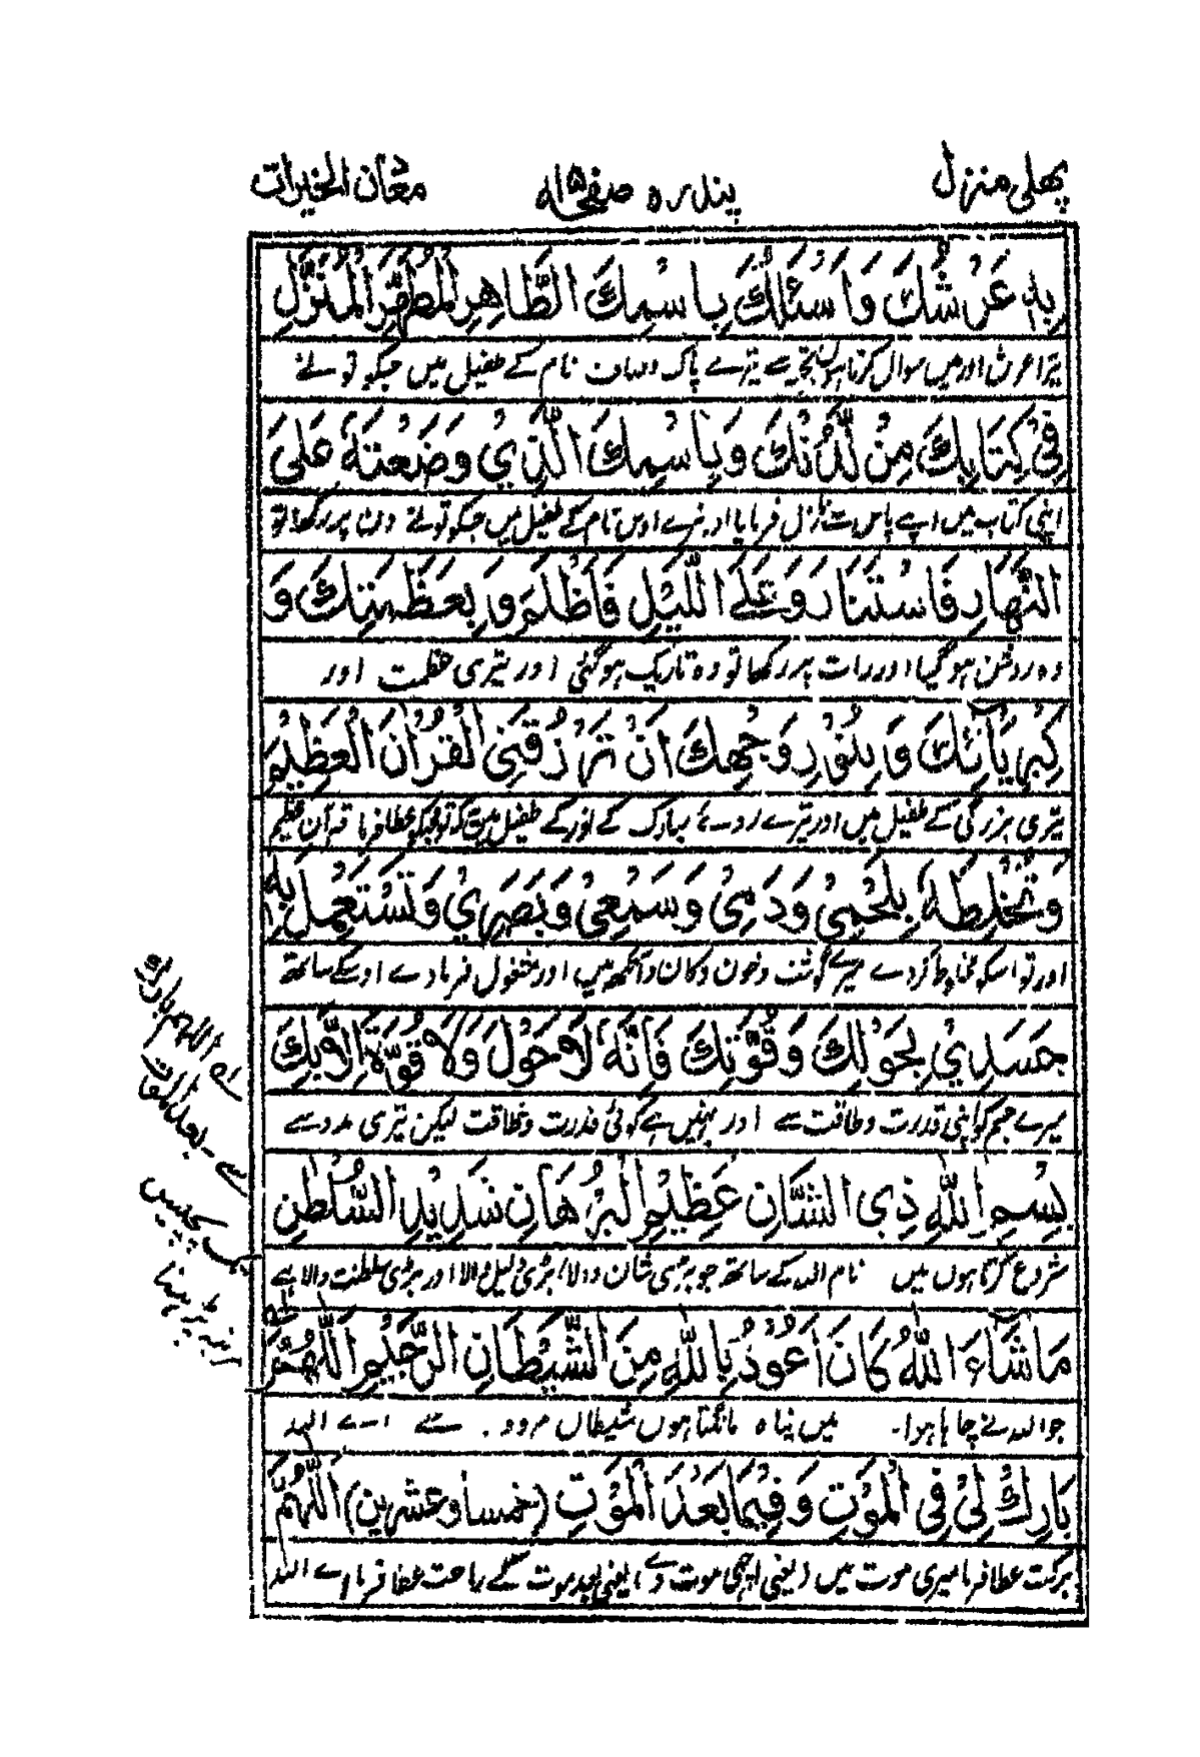 پهلی منزل پندره صفحه ۱۵ معان الخیرات
بِهٖ عَرْشُكَ وَاَسْئَلُكَ بِاسْمِكَ الطَّاهِرِ الْمُطَهَّرِ الْمُنَزَّلِ
تیرا عرش اور میں سوال کرتا ہوں تجھ سے تیرے پاک وصاف نام کے طفیل میں جسکو تو نے
فِیْ كِتَابِكَ مِنْ لَّدُنْكَ وَبِاسْمِكَ الَّذِیْ وَضَعْتَهٗ عَلَی
اپنی کتاب میں اپنے پاس سے نازل فرمایا اور تیرے اوس نام کے طفیل میں جسکو تو نے دن پر رکھا تو
النَّهَارِ فَاسْتَنَارَ وَعَلَی اللَّیْلِ فَاَظْلَمَ وَبِعَظَمَتِكَ وَ
وہ روشن ہو گیا اور رات پر رکھا تو وہ تاریک ہو گئی اور تیری عظمت اور
كِبْرِیَآئِكَ وَبِنُوْرِ وَجْهِكَ اَنْ تَرْزُقَنِی الْقُرْاٰنَ الْعَظِیْمَ
تیری بزرگی کے طفیل میں اور تیرے روئے مبارک کے نور کے طفیل میں کہ تو مجھکو عطا فرما قرآن عظیم
وَتُخْلِطَهٗ بِلَحْمِیْ وَدَمِیْ وَسَمْعِیْ وَبَصَرِیْ وَتَسْتَعْمِلَ بِهٖ
اور تو اسکو مخلوط کردے میرے گوشت وخون وکان وآنکھ میں اور مشغول فرمادے اوسکے ساتھ
جَسَدِیْ بِحَوْلِكَ وَقُوَّتِكَ فَاِنَّهٗ لَا حَوْلَ وَلَا قُوَّةَ اِلَّا بِكَ
میرے جسم کو اپنی قدرت وطاقت سے اور نہیں ہے کوئی قدرت وطاقت لیکن تیری مدد سے
بِسْمِ اللّٰهِ ذِی الشَّانِ عَظِیْمِ الْبُرْهَانِ شَدِیْدِ السُّلْطٰنِ
شروع کرتا ہوں میں نام اللہ کے ساتھ جو بڑی شان والا، بڑی دلیل والا اور بڑی سلطنت والا ہے
مَاشَآءَ اللّٰهُ كَانَ اَعُوْذُ بِاللّٰهِ مِنَ الشَّیْطَانِ الرَّجِیْمِ اَللّٰهُمَّ
جو اللہ نے چاہا ہوا۔ میں پناہ مانگتا ہوں شیطان مردود سے اے اللہ
بَارِكْ لِیْ فِی الْمَوْتِ وَفِیْمَا بَعْدَ الْمَوْتِ (خمساً وعشرین) اَللّٰهُمَّ
برکت عطا فرما میری موت میں (یعنی اچھی موت دے) یعنی بعد موت کے راحت عطا فرما، اے اللہ
اللهم بارك
سے - بعد الموت
تک پچیس
مرتبہ پڑہنا